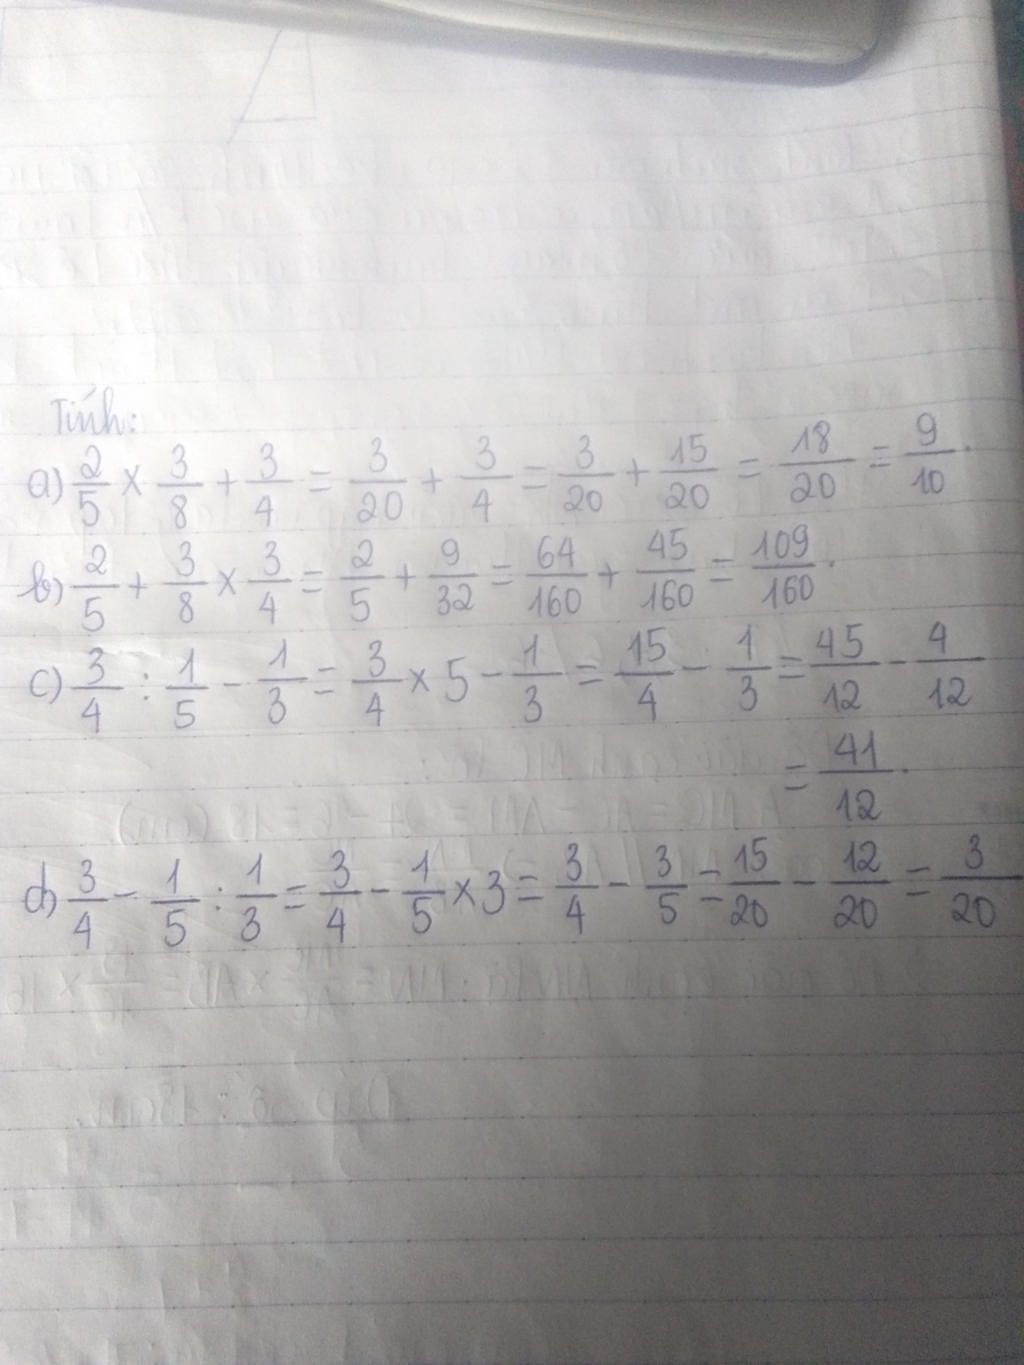 Tính:
a) 2/5 × 3/8 + 3/4 = 3/20 + 3/4 = 3/20 + 15/20 = 18/20 = 9/10.
b) 2/5 + 3/8 × 3/4 = 2/5 + 9/32 = 64/160 + 45/160 = 109/160.
c) 3/4 : 1/5 - 1/3 = 3/4 × 5 - 1/3 = 15/4 - 1/3 = 45/12 - 4/12
= 41/12.
d) 3/4 - 1/5 : 1/3 = 3/4 - 1/5 × 3 = 3/4 - 3/5 = 15/20 - 12/20 = 3/20